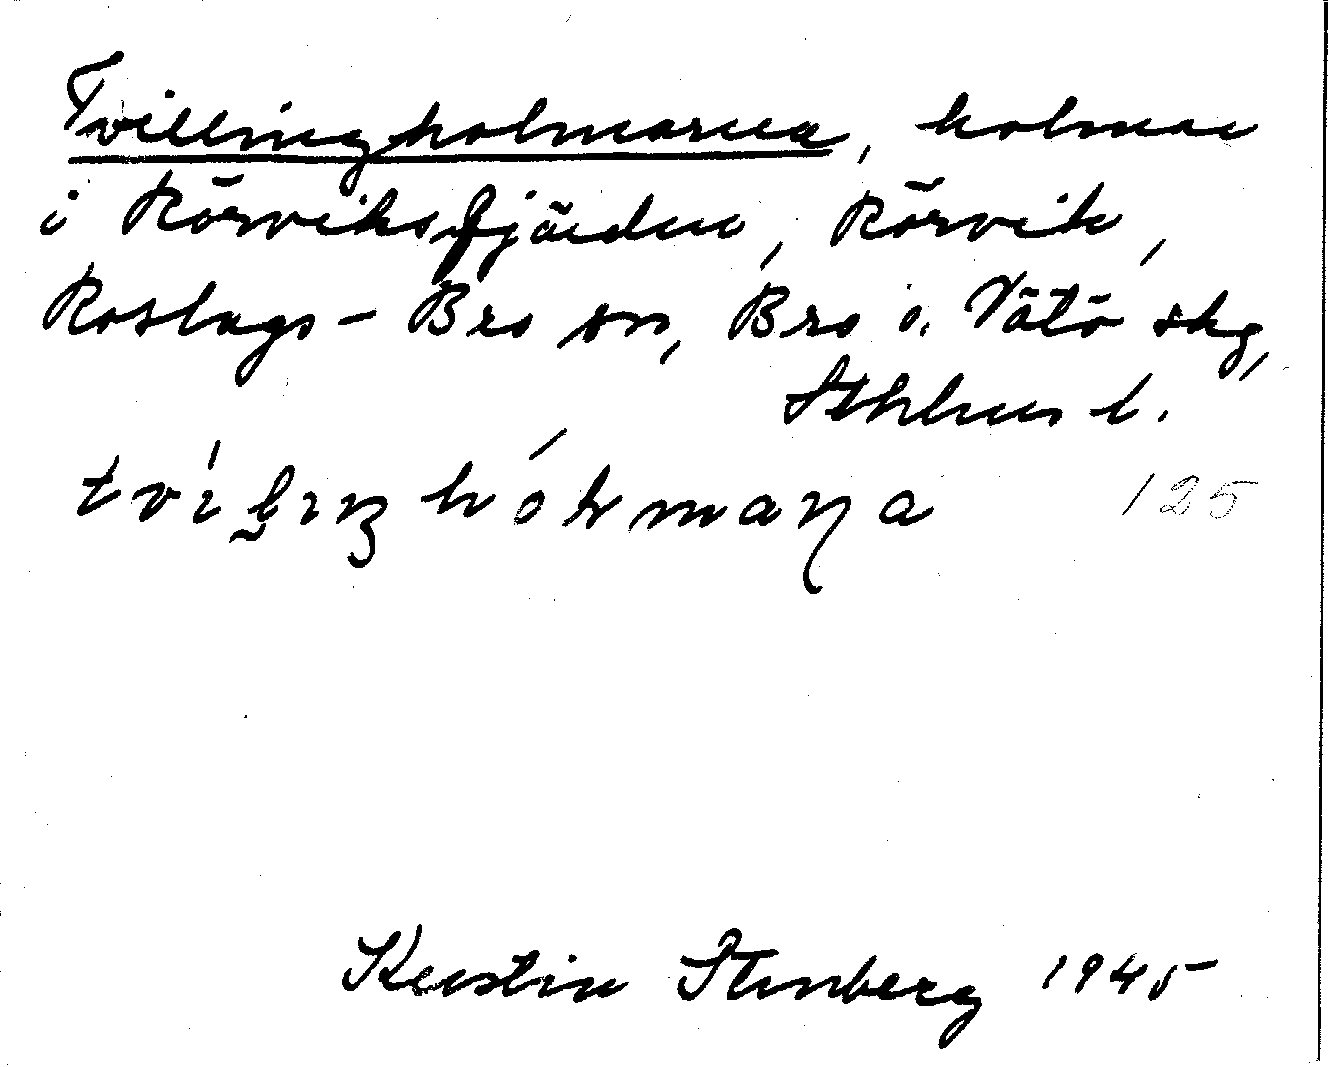 Tvillingholmarna, holmar
i Körviksfjärden, Körvik,
Roslags-Bro sn, Bro o. Vätö skg,
Sthlms l.
125
Kerstin Stenberg 1945